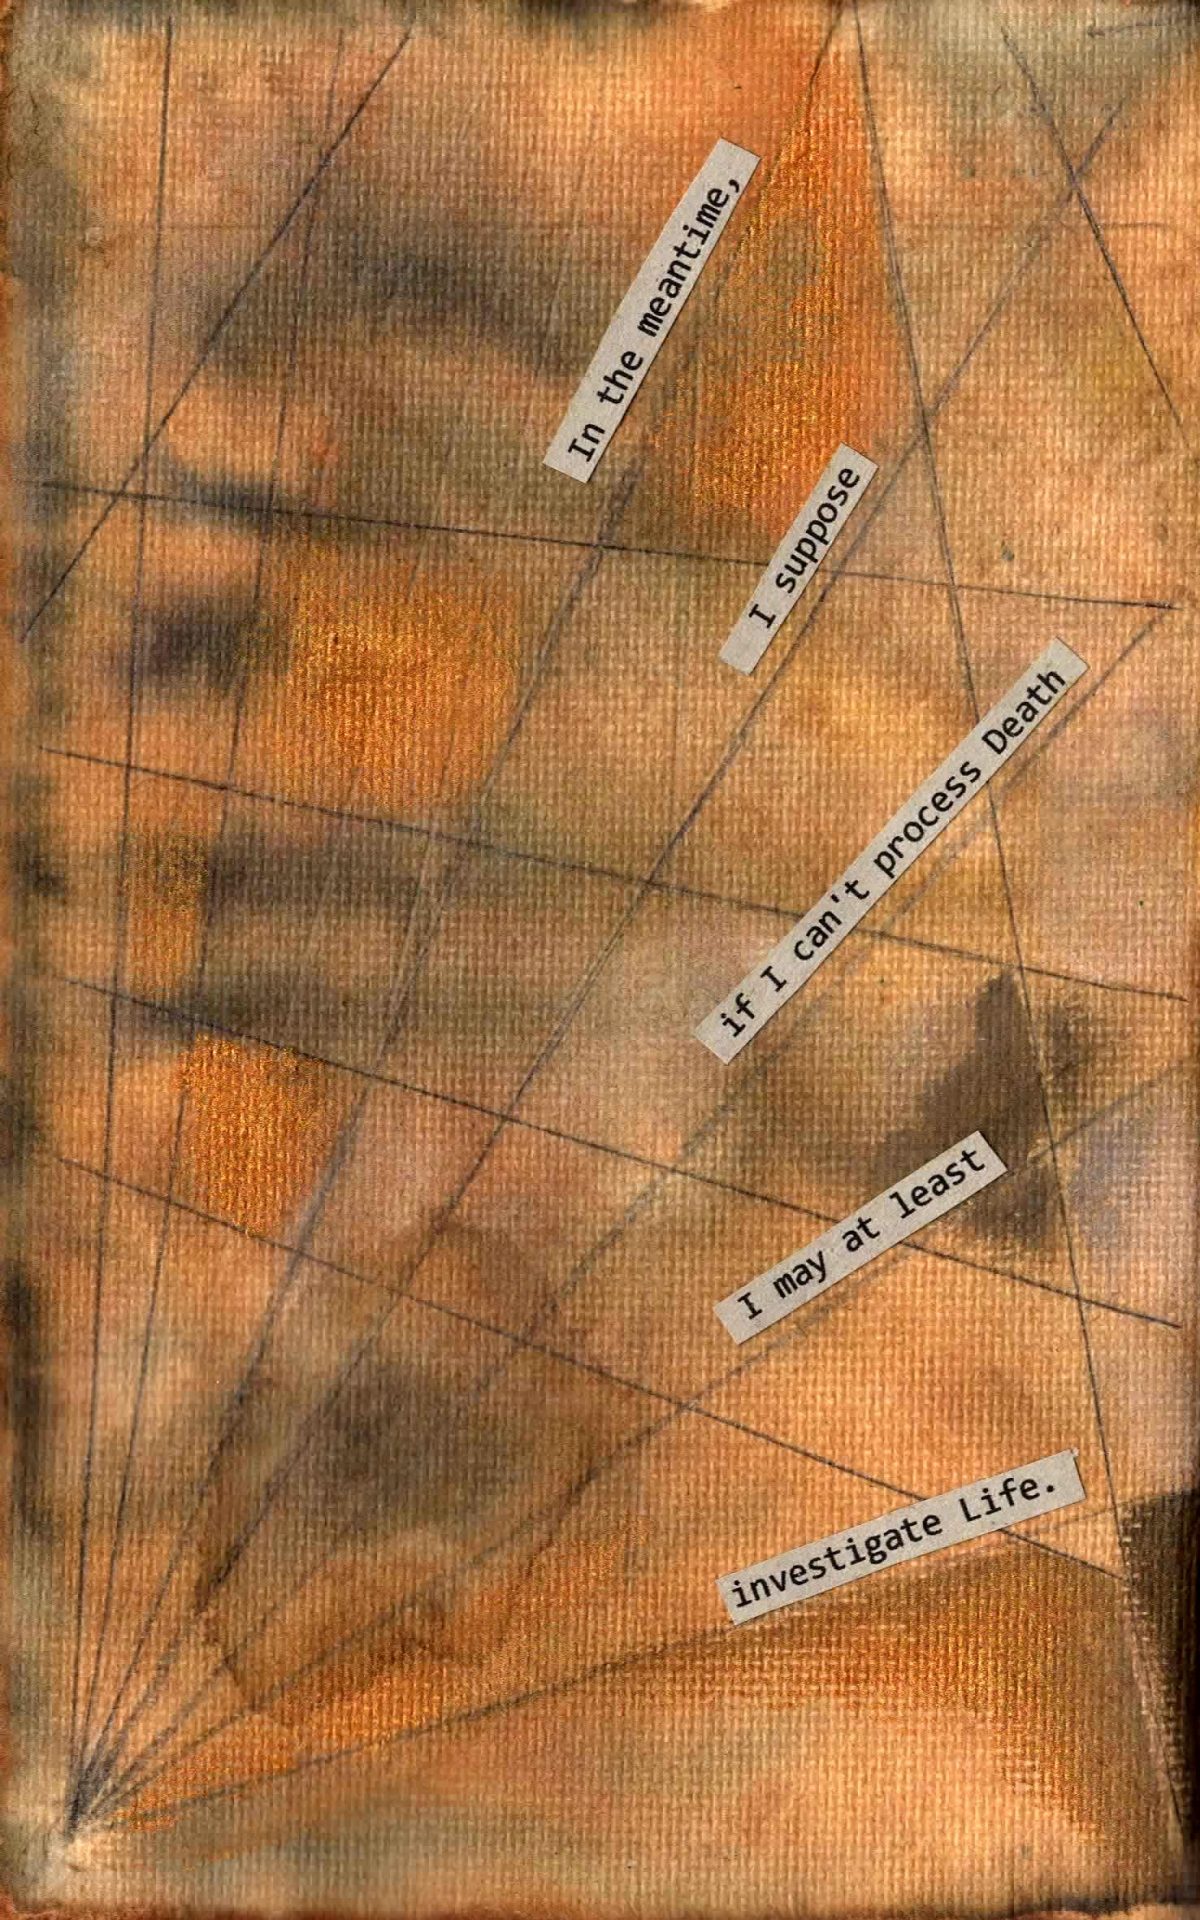 In the meantime,
I suppose
if I can't process Death
I may at least
investigate Life.